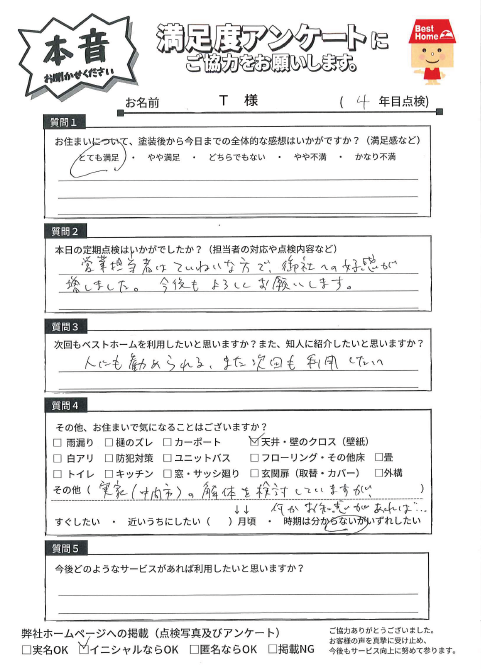 本音
お聞かせください
満足度アンケートに
ご協力をお願いします。
Best Home
お名前 T 様 ( 4 年目点検)
質問1
お住まいについて、塗装後から今日までの全体的な感想はいかがですか?(満足感など)
とても満足 ・ やや満足 ・ どちらでもない ・ やや不満 ・ かなり不満
質問2
本日の定期点検はいかがでしたか?(担当者の対応や点検内容など)
営業担当者はていねいな方で、御社への好感が
増しました。今後もよろしくお願いします。
質問3
次回もベストホームを利用したいと思いますか?また、知人に紹介したいと思いますか?
人にも勧められる、また次回も利用したい
質問4
その他、お住まいで気になることはございますか?
□ 雨漏り □ 樋のズレ □ カーポート ☑天井・壁のクロス(壁紙)
□ 白アリ □ 防犯対策 □ ユニットバス □ フローリング・その他床 □畳
□ トイレ □ キッチン □ 窓・サッシ廻り □ 玄関扉(取替・カバー) □外構
その他 ( 実家()の解体を検討していますが、 )
↓↓ 何かお知恵があれば…
すぐしたい ・ 近いうちにしたい ( )月頃 ・ 時期は分からないがいずれしたい
質問5
今後どのようなサービスがあれば利用したいと思いますか?
弊社ホームページへの掲載(点検写真及びアンケート)
□実名OK ☑イニシャルならOK □匿名ならOK □掲載NG
ご協力ありがとうございました。
お客様の声を真摯に受け止め、
今後もサービス向上に努めて参ります。